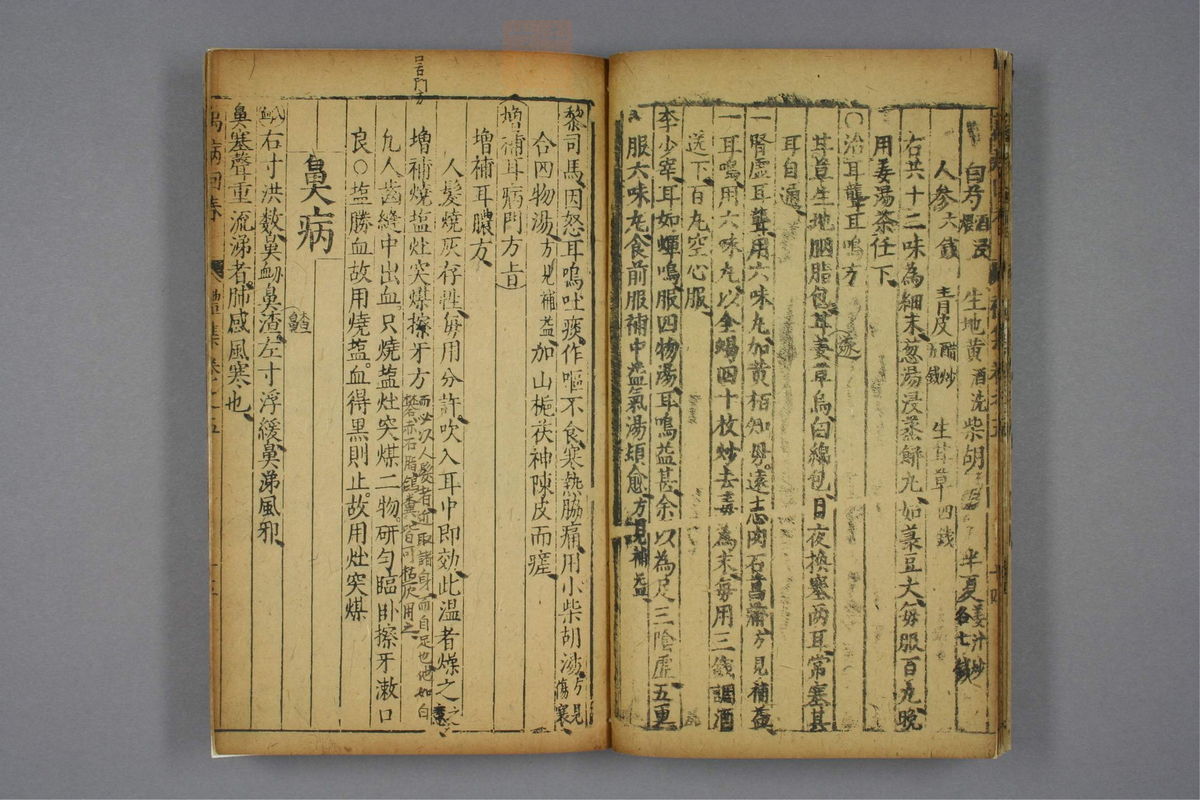 白芍酒浸 生地黄酒洗 柴胡 半夏姜汁炒各七錢
人參六錢 青皮醋炒 生甘草四錢
右共十二味為細末葱湯浸蒸餅丸如菉豆大每服百丸晚
用姜湯茶任下
○治耳聾耳鳴方
甘草生地胭脂包甘遂草烏白綿包日夜換塞两耳常塞甚
耳自通
遂
一腎虚耳聾用六味丸加黄栢知母遠志肉石菖蒲方見補益
一耳鳴用六味丸以全蝎四十枚炒去毒為末每用三錢調酒
送下百丸空心服
李少宰耳如蟬鳴服四物湯耳鳴益甚余以為足三陰虚五更
服六味丸食前服補中益氣湯頓愈方見補益
黎司馬因怒耳鳴吐痰作嘔不食寒熱脇痛用小柴胡湯方見傷寒
合四物湯方見補益加山梔茯神陳皮而瘥
增補耳病門方旨
增補耳膿方
人髮燒灰存性每用分許吹入耳中即効此温者燥之之意
而必以人髮者近取諸身而自足也他如白
礬赤石脂雞糞皆可燒灰用之
增補燒塩灶突煤擦牙方
凢人齒縫中出血只燒塩灶突煤二物研匀臨卧擦牙漱口
良○塩勝血故用燒塩血得黒則止故用灶突煤
鼻病
鼻衄右寸洪数鼻衄鼻渣左寸浮緩鼻涕風邪
鼻塞聲重流涕者肺感風寒也
萬病回春 禮集 卷之五